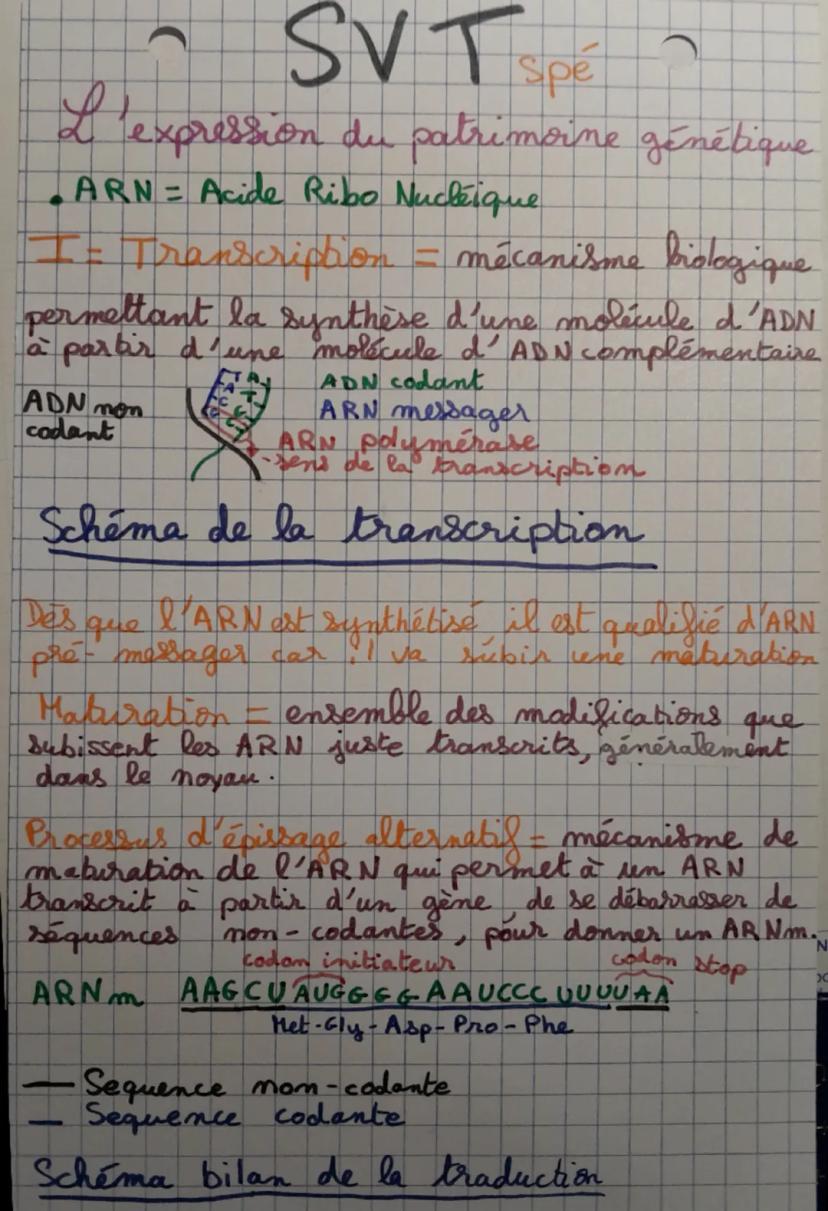 SVT spé
L'expression du patrimoine génétique
. ARN = Acide Ribo Nucléique
I = Transcription = mécanisme biologique
permettant la synthèse d'une molécule d'ADN
à partir d'une molécule d'ADN complémentaire
ADN non codant
ADN codant
ARN messager
ARN polymérase
sens de la transcription
Schéma de la transcription
Dès que l'ARN est synthétisé il est qualifié d'ARN
pré-messager car il va subir une maturation
Maturation = ensemble des modifications que
subissent les ARN juste transcrits, généralement
dans le noyau.
Processus d'épissage alternatif = mécanisme de
maturation de l'ARN qui permet à un ARN
transcrit à partir d'un gène de se débarrasser de
séquences non-codantes, pour donner un ARNm.
codon initiateur codon stop
ARNm AAGCUAUGGGGAAUCCCUUUUAA
Met-Gly-Asp-Pro-Phe
— Sequence non-codante
— Sequence codante
Schéma bilan de la traduction